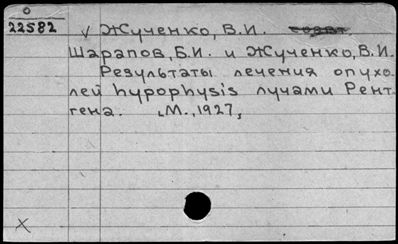 0
22582
√ Жученко, В.И.
Шарапов, Б.И. и Жученко, В.И.
Результаты лечения опухо
лей hypophysis лучами Рент
гена. М., 1927,
X